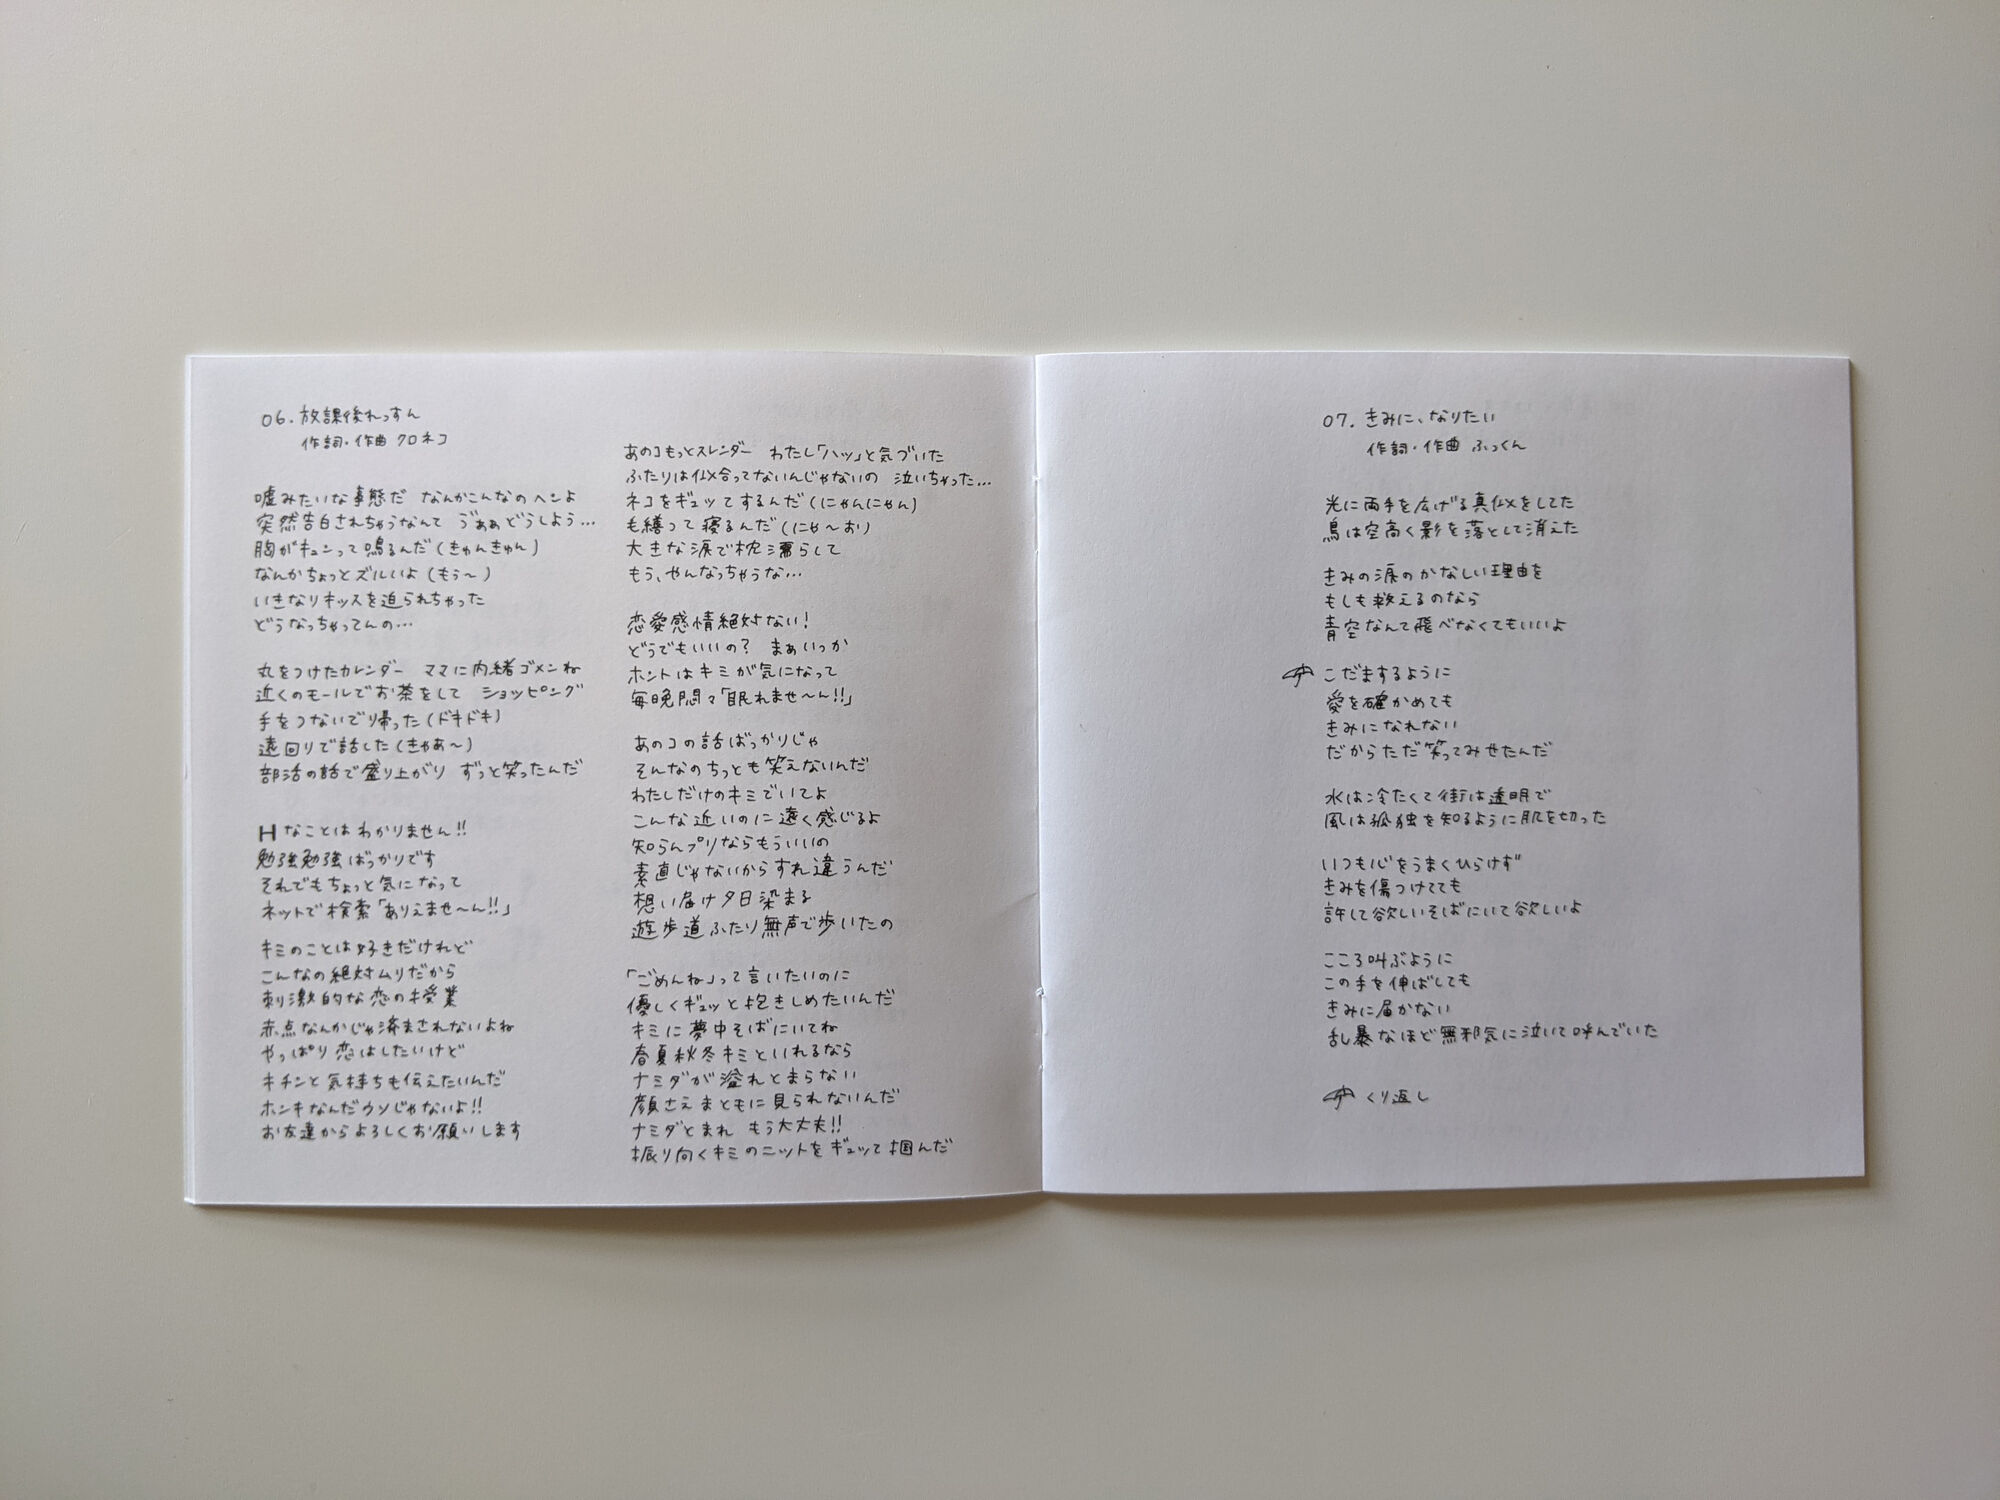 06. 放課後れっすん
作詞・作曲 クロネコ
嘘みたいな事態だ なんかこんなのヘンよ
突然告白されちゃうなんて ゔぁぁどうしよう…
胸がキュンって鳴るんだ(きゅんきゅん)
なんかちょっとズルいよ(もう〜)
いきなりキッスを迫られちゃった
どうなっちゃってんの…
丸をつけたカレンダー ママに内緒ゴメンね
近くのモールでお茶をして ショッピング
手をつないで帰った(ドキドキ)
遠回りで話した(きゃあ〜)
部活の話で盛り上がり ずっと笑ったんだ
Hなことはわかりません!!
勉強勉強ばっかりです
それでもちょっと気になって
ネットで検索「ありえませ〜ん!!」
キミのことは好きだけれど
こんなの絶対ムリだから
刺激的な恋の授業
赤点なんかじゃ済まされないよね
やっぱり恋はしたいけど
キチンと気持ちも伝えたいんだ
ホンキなんだウソじゃないよ!!
お友達からよろしくお願いします
あのコもっとスレンダー わたし「ハッ」と気づいた
ふたりは似合ってないんじゃないの 泣いちゃった…
ネコをギュッてするんだ(にゃんにゃん)
も繕って寝るんだ(にゃ〜お)
大きな涙で枕濡らして
もう、やんなっちゃうな…
恋愛感情絶対ない!
どうでもいいの? まぁいっか
ホントはキミが気になって
毎晩悶々「眠れませ〜ん!!」
あのコの話ばっかりじゃ
そんなのちっとも笑えないんだ
わたしだけのキミでいてよ
こんな近いのに遠く感じるよ
知らんプリならもういいの
素直じゃないからすれ違うんだ
想い届け夕日染まる
遊歩道ふたり無声で歩いたの
「ごめんね」って言いたいのに
優しくギュッと抱きしめたいんだ
キミに夢中そばにいてね
春夏秋冬キミといれるなら
ナミダが溢れとまらない
顔さえまともに見られないんだ
ナミダとまれ もう大丈夫!!
振り向くキミのニットをギュッて掴んだ
07. きみに、なりたい
作詞・作曲 ふっくん
光に両手を広げる真似をしてた
鳥は空高く影を落として消えた
きみの涙のかなしい理由を
もしも救えるのなら
青空なんて飛べなくてもいいよ
こだまするように
愛を確かめても
きみになれない
だからただ笑ってみせたんだ
水は冷たくて街は透明で
風は孤独を知るように肌を切った
いつも心をうまくひらけず
きみを傷つけてても
許して欲しいそばにいて欲しいよ
こころ叫ぶように
この手を伸ばしても
きみに届かない
乱暴なほど無邪気に泣いて呼んでいた
くり返し